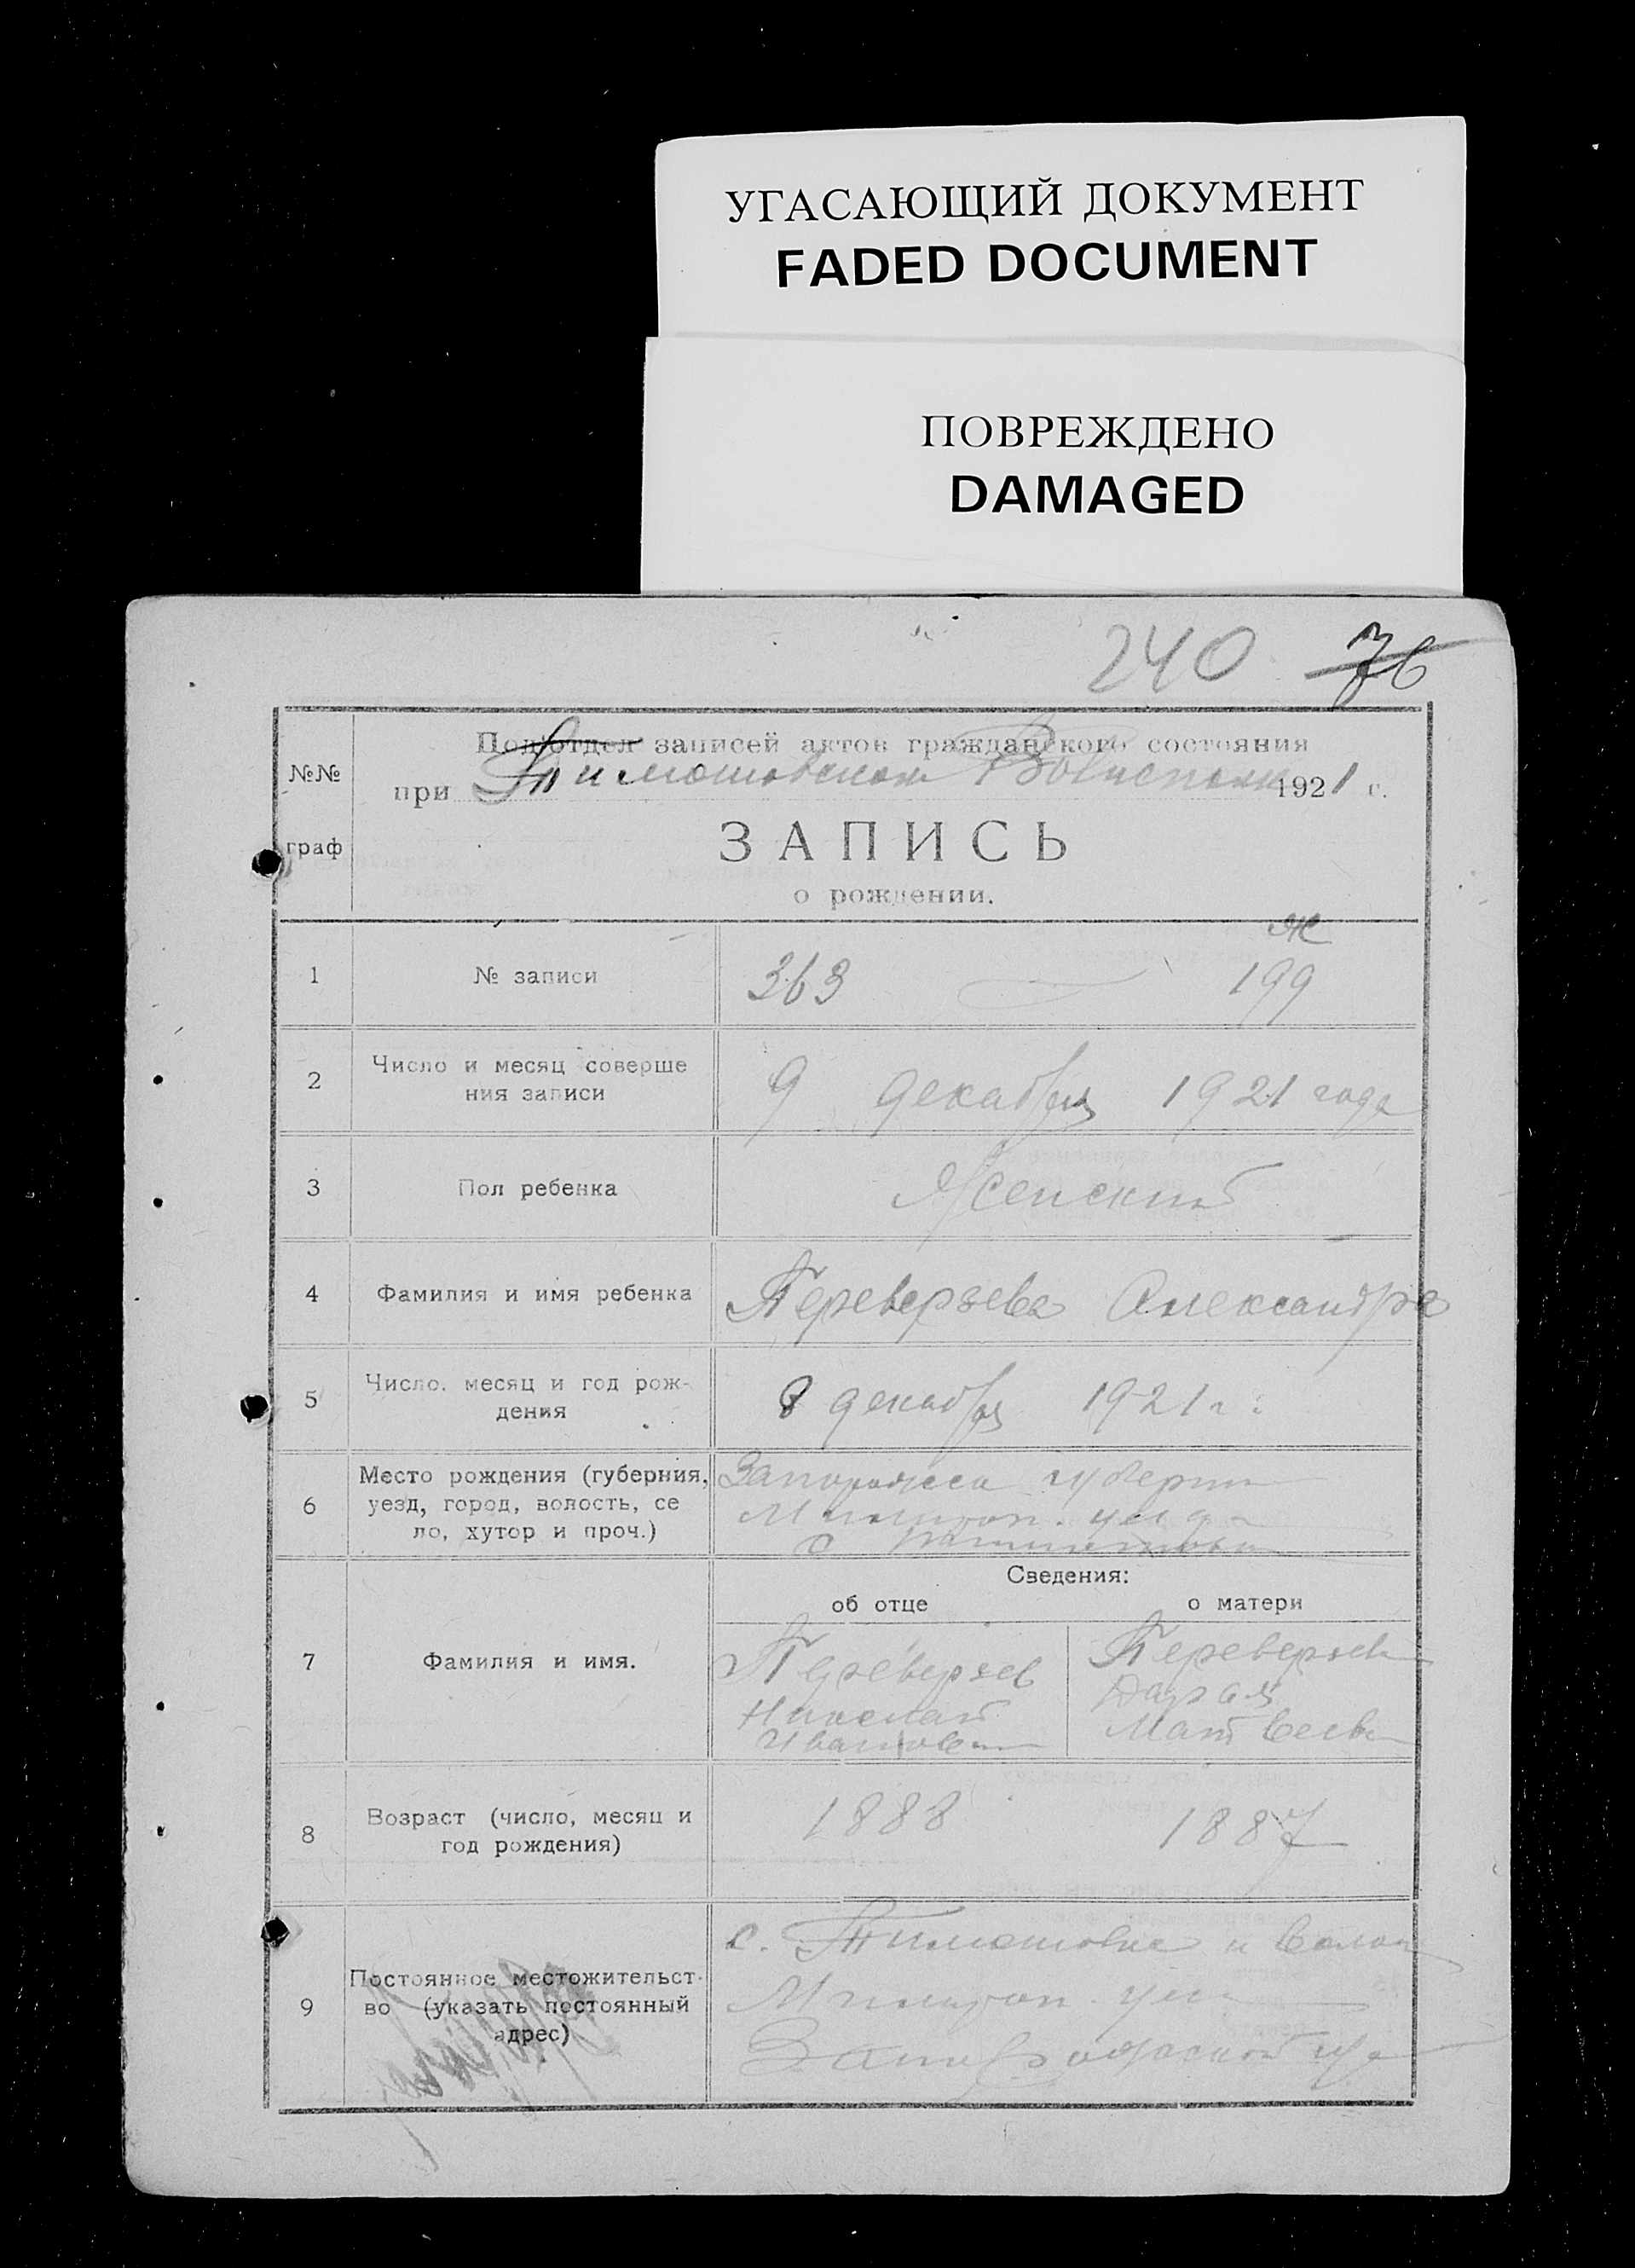 УГАСАЮЩИЙ ДОКУМЕНТ
FADED DOCUMENT
ПОВРЕЖДЕНО
DAMAGED
240 76
№№ граф
Подотдел записей актов гражданского состояния
при Тимошовском Волисполк 1921 г.
ЗАПИСЬ
о рождении.
ж
1 № записи 363 199
2 Число и месяц соверше
ния записи
9 декабря 1921 года
3 Пол ребенка Женский
4 Фамилия и имя ребенка Переверзева Александра
5 Число. месяц и год рож-
дения
8 декабря 1921 г.
6 Место рождения (губерния,
уезд, город, волость, се
ло, хутор и проч.)
губерни
с
Сведения:
об отце о матери
7 Фамилия и имя.
Переверзев
Николай
Иванович
Переверзев
Дарья
Матвеев
8 Возраст (число, месяц и
год рождения)
1888 1887
9 Постоянное местожительст-
во (указать постоянный
адрес)
с. Тимошовке и волос
Мелитоп. уез
Запорожской губ